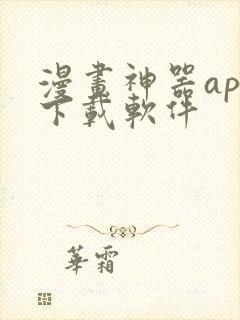 漫畫神器ap
下載軟件
華霜